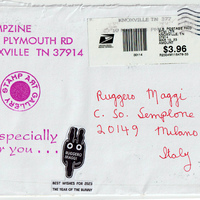 MPZINE
PLYMOUTH RD
XVILLE TN 37914
STAMP ART
GALLERY
specially
or you . . .
KNOXVILLE TN
$3.96
Ruggero Maggi
C. So. Sempione
20149 Milano
Italy
RUGGERO
MAGGI
BEST WISHES FOR 2023
THE YEAR OF THE BUNNY